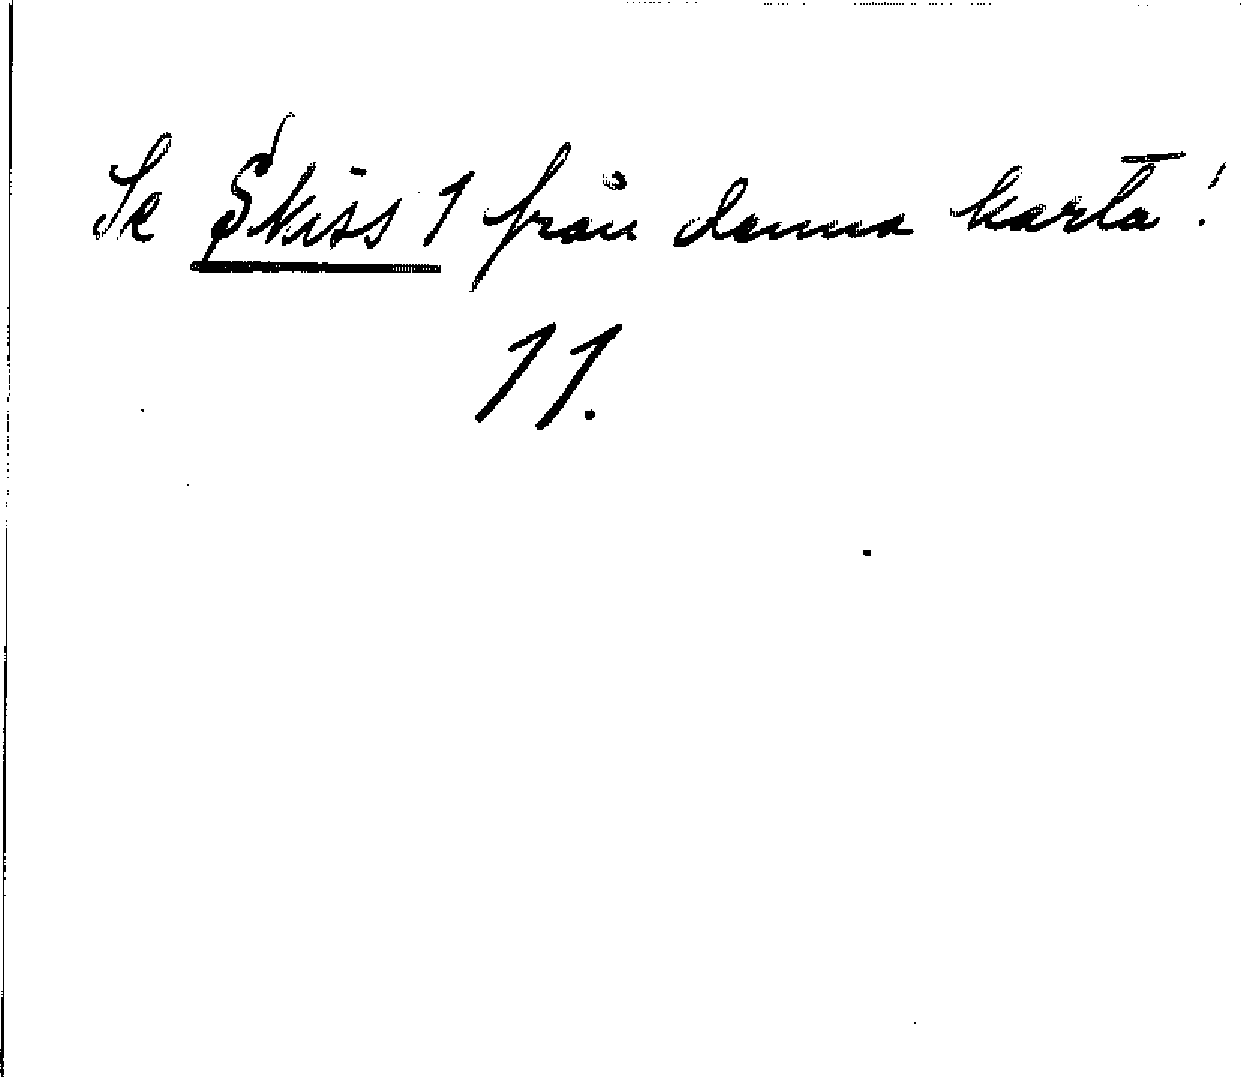 Se Skiss 1 från denna karta!
11.